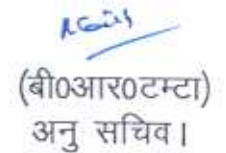 (बी0आर0टम्टा)
अनु सचिव।